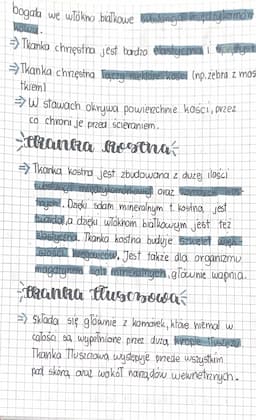 bogata we włókno białkowe substancja międzykomór-
kowa.
⇒ Tkanka chrzęstna jest bardzo elastyczna i
⇒ Tkanka chrzęstna łączy niektóre kości (np. żebra z mos
tkiem)
⇒ W stawach okrywa powierzchnie kości, przez
co chroni je przed ścieraniem.
tkanka kostna
⇒ Tkanka kostna jest zbudowana z dużej ilości
substancji międzykomórkowej oraz
Dzięki solom mineralnym t. kostna jest
twarda, a dzięki włóknom białkowym jest też
elastyczna. Tkanka kostna buduje szkielet więk-
szości kręgowców. Jest także dla organizmu
magazynem soli mineralnych, głównie wapnia.
tkanka tłuszczowa
⇒ Składa się głównie z komórek, które niemal w
całości są wypełnione przez dużą kroplę tłuszczu
Tkanka Tłuszczowa występuje przede wszystkim
pod skórą oraz wokół narządów wewnętrznych.